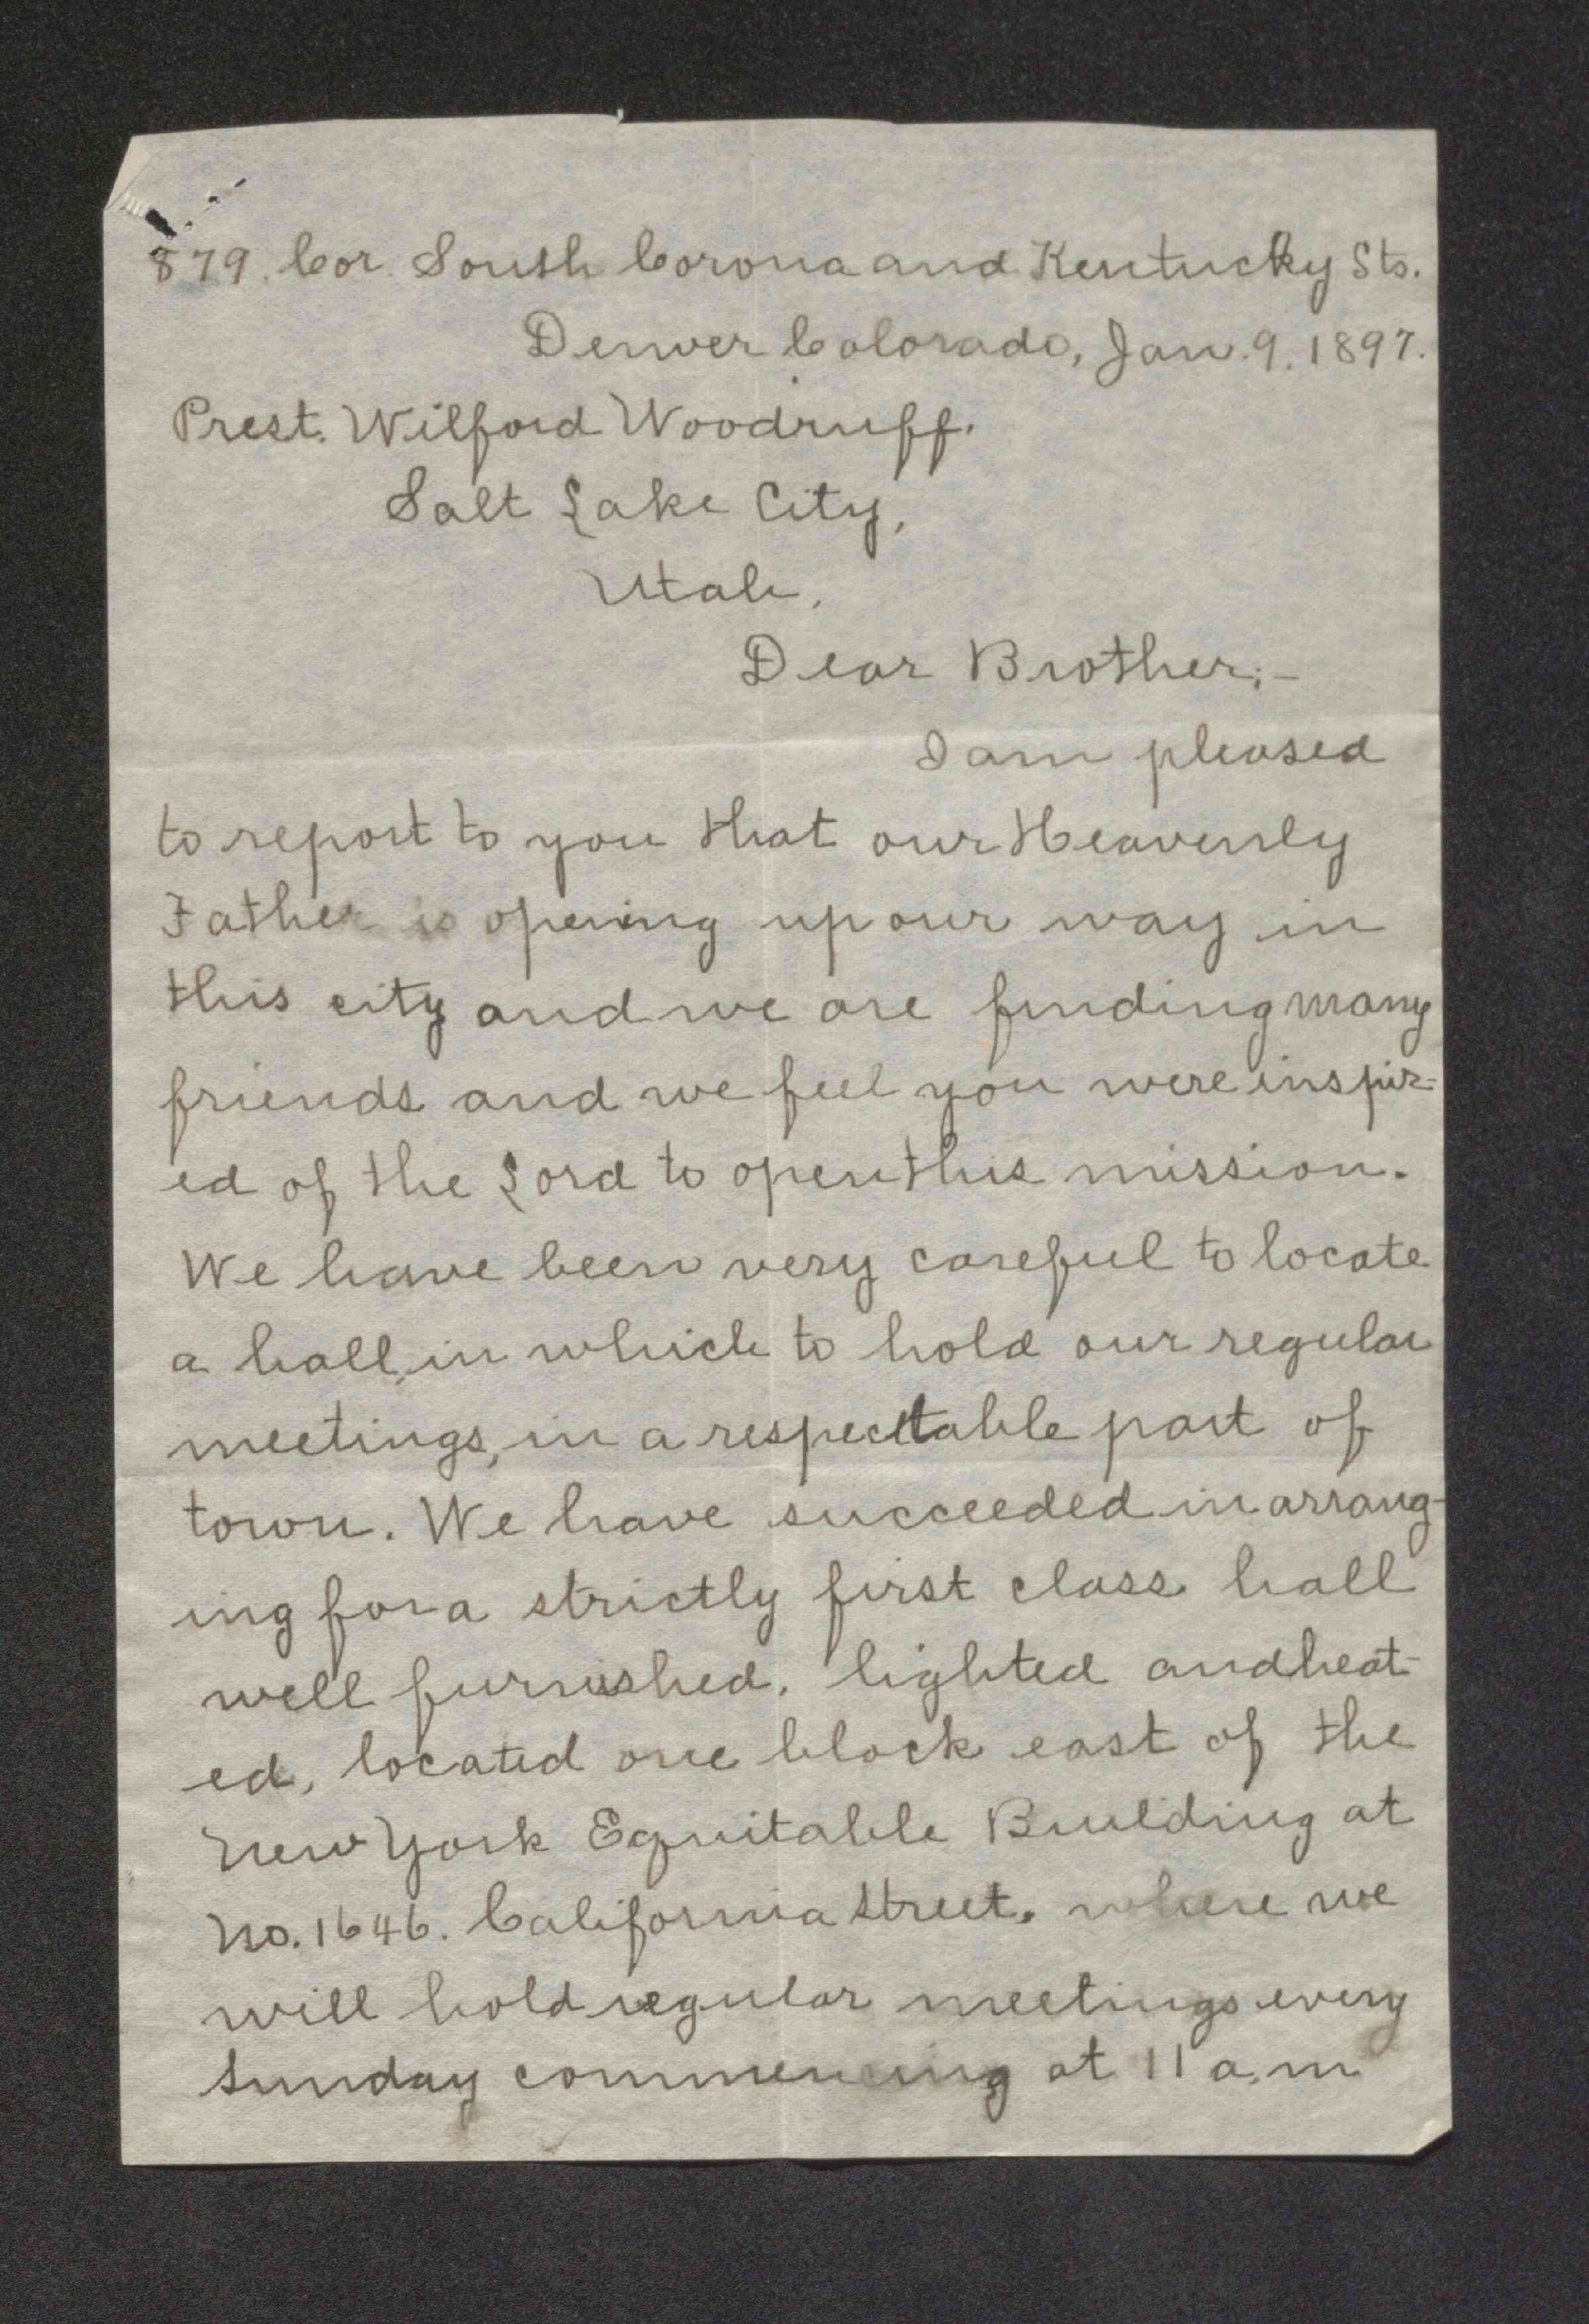 879. Cor. South Corona and Kentucky Sts.
Denver Colorado, Jan. 9. 1897.
Prest. Wilford Woodruff.
Salt Lake City,
Utah,
Dear Brother;-
I am pleased
to report to you that our Heavenly
Father is opening up our way in
this city and we are finding many
friends and we feel you were inspir-
ed of the Lord to open this mission.
We have been very careful to locate
a hall, in which to hold our regular
meetings, in a respectable part of
town. We have succeeded in arrang-
ing for a strictly first class hall
well furnished, lighted and heat-
ed, located one block east of the
New York Equitable Building at
No. 1646. California street, where we
will hold regular meetings every
Sunday commencing at 11 a.m